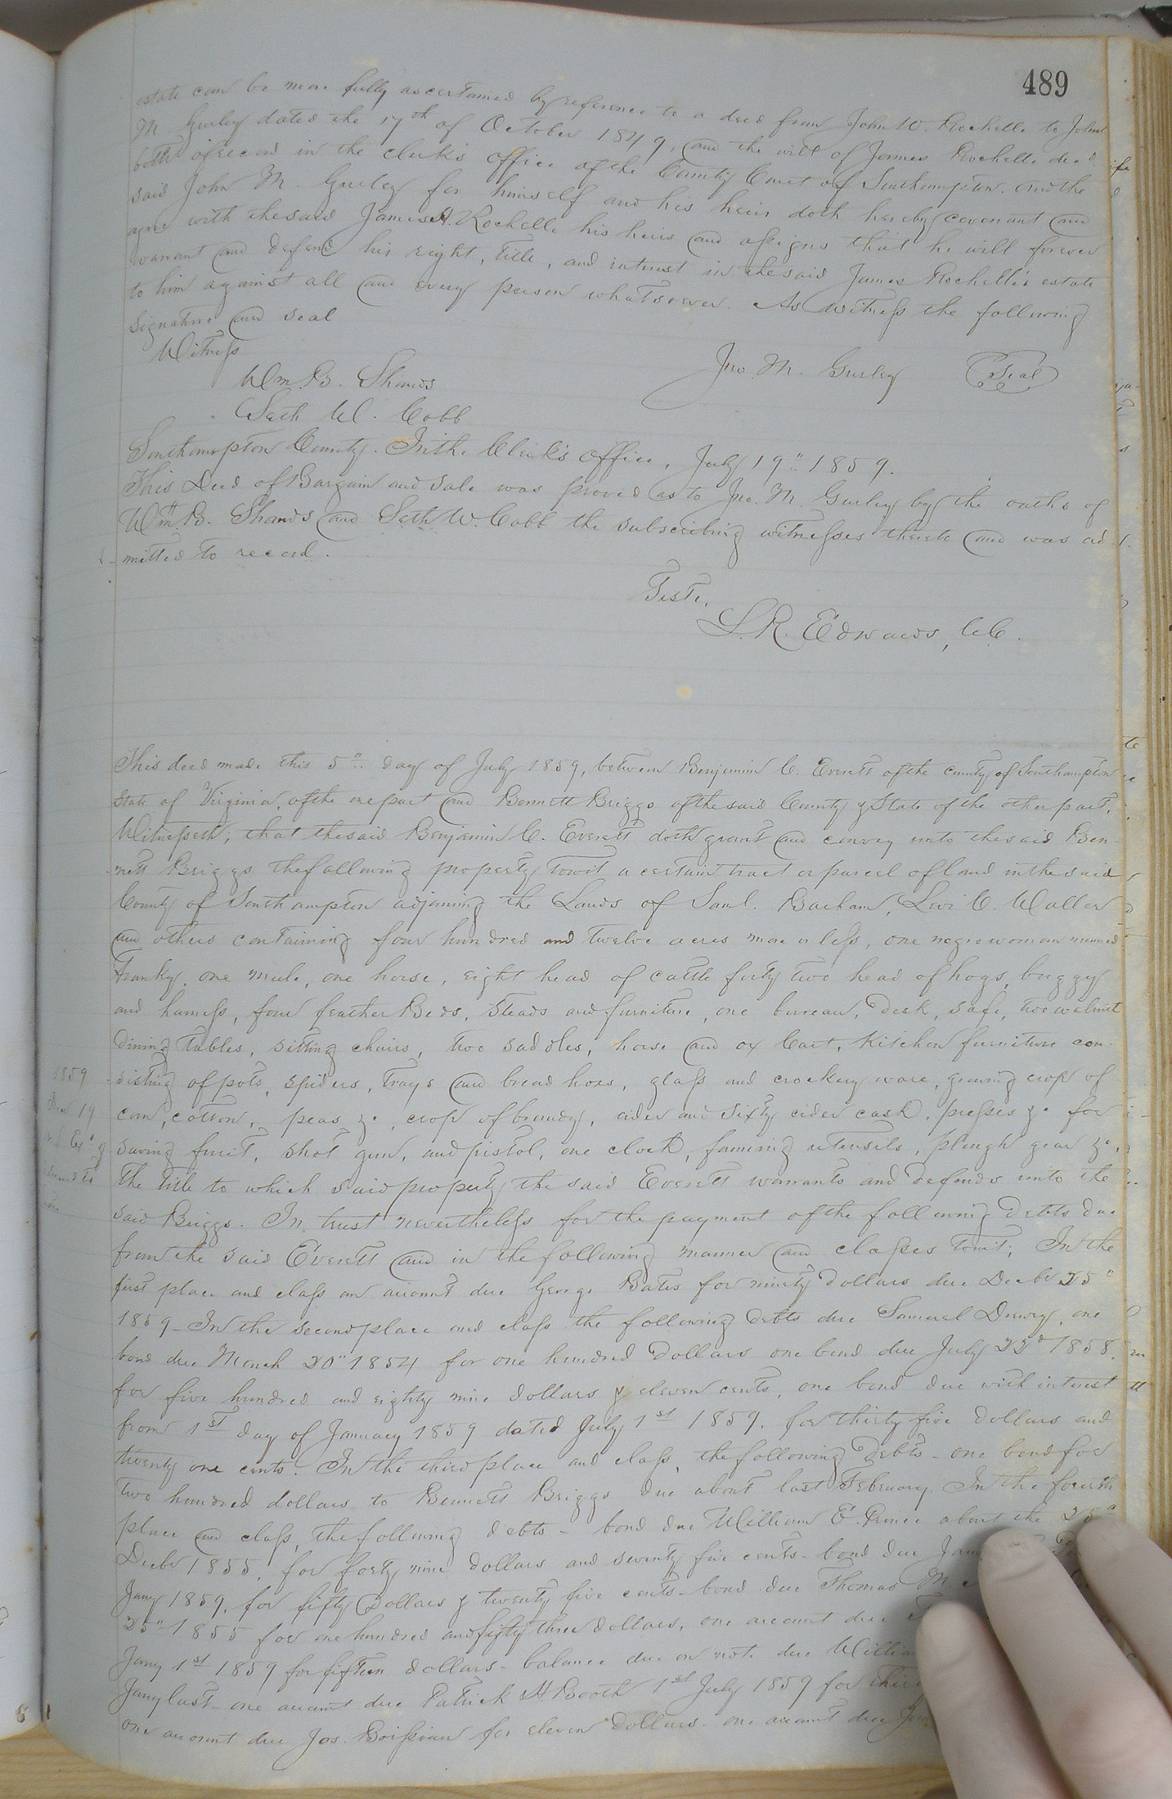 489
estate can be more fully ascertained by reference to a deed from John W. Rochelle to John
M. Gurley dated the 17th of October 1849, and the will of James Rochelle decd
both of record in the clerk's office of the County Court of Southampton. And the
said John M. Gurley for himself and his heirs doth hereby covenant and
agree with the said James A. Rochelle his heirs and assigns that he will forever
warrant and defend his right, title, and interest in the said James Rochelle's estate
to him against all and every person whatsoever. As witness the following
signature and seal
Witness
Jno. M. Gurley Seal
Wm. B. Shands
Seth W. Cobb
Southampton County. In the Clerk's office, July 19" 1859.
This Deed of Bargain and Sale was proved as to Jno. M. Gurley by the oaths of
Wm B. Shands and Seth W. Cobb the subscribing witnesses thereto and was ad
mitted to record.
Teste,
L. R. Edwards, C.C.
This deed made this 5" day of July 1859, between Benjamin C. Everett of the county of Southampton
State of Virginia, of the one part and Bennett Briggs of the said County & State of the other part,
Witnesseth; that the said Benjamin C. Everett doth grant and convey unto the said Ben
nett Briggs the following property towit a certain tract or parcel of land in the said
County of Southampton adjoining the Lands of Saml. Barham, Levi C. Waller
and others containing four hundred and twelve acres more or less, one negro woman named
Franky, one mule, one horse, eight head of cattle forty two head of hogs, buggy
and harness, four feather Beds, Steads and furniture, one bureau, Desk, Safe, two walnut
Dining Tables, sitting chairs, two saddles, horse and ox Cart, Kitchen furniture con-
sisting of pots, spiders, trays and bread hoes, glass and crockery ware, growing crop of
corn, cotton, peas &c, crop of brandy, cider and sixty cider cask, presses &c for
saving fruit, shot gun, and pistol, one clock, farming utensils, plough gear &c,
the title to which said property the said Everett warrants and defends unto the
said Briggs. In trust nevertheless for the payment of the following debts due
from the said Everett and in the following manner and classes towit; In the
first place and class an account due George Bates for ninety Dollars due Decbr 25"
1859 - In the second place and class the following debts due Samuel Drewry, one
bond due March 20" 1854 for one hundred Dollars one bond due July 25" 1858,
for five hundred and eighty nine dollars & eleven cents, one bond due with interest
from 1st day of January 1859 dated July 1st 1859, for thirty five Dollars and
twenty one cents. In the third place and class, the following Debts - one bond for
two hundred dollars to Bennett Briggs due about last February. In the fourth
place and class, the following debts - bond due William E. Prince about the 25"
Decbr 1855, for forty nine dollars and seventy five cents - bond due Jam
Jany 1859, for fifty Dollars & twenty five cents - bond due Thomas M
25" 1855 for one hundred and fifty three dollars, one account due
Jany 1st 1859 for fifteen dollars - balance due on note due Willia
Jany last - one account due Patrick H Booth 1st July 1859 for
one account due Jos. Boisseau for eleven Dollars - one account due
1859